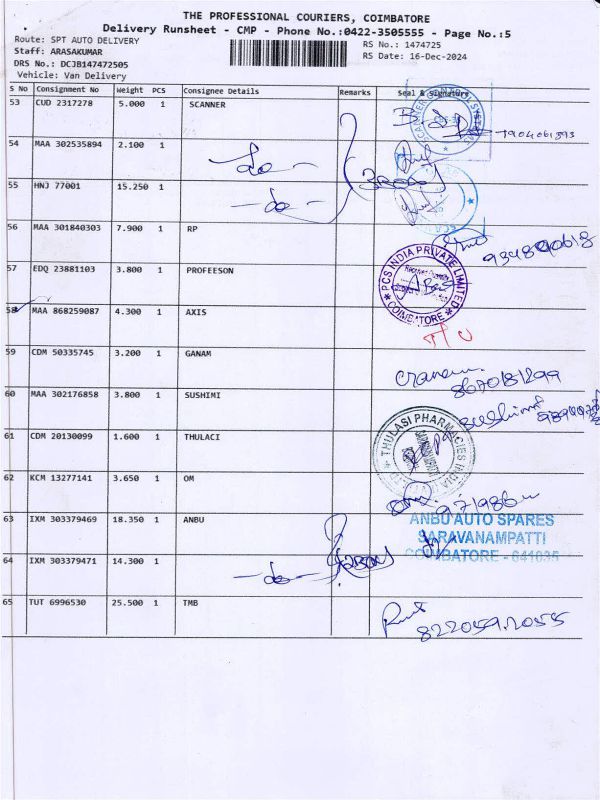 THE PROFESSIONAL COURIERS, COIMBATORE
Delivery Runsheet - CMP - Phone No.:0422-3505555 - Page No.:5
Route: SPT AUTO DELIVERY
Staff: ARASAKUMAR
DRS No.: DCJB147472505
Vehicle: Van Delivery
RS No.: 1474725
RS Date: 16-Dec-2024
S No Consignment No Weight PCS Consignee Details Remarks Seal & Signature
53 CUD 2317278 5.000 1 SCANNER
54 MAA 302535894 2.100 1 -do-
55 HNJ 77001 15.250 1 -do-
56 MAA 301840303 7.900 1 RP
57 EDQ 23881103 3.800 1 PROFEESON
PCS INDIA PRIVATE LIMITED
* COIMBATORE *
58 MAA 868259087 4.300 1 AXIS
59 CDM 50335745 3.200 1 GANAM
8670181299
60 MAA 302176858 3.800 1 SUSHIMI
61 CDM 20130099 1.600 1 THULACI
THULASI PHARMACIES INDIA
62 KCM 13277141 3.650 1 OM
63 IXM 303379469 18.350 1 ANBU
ANBU AUTO SPARES
SARAVANAMPATTI
COIMBATORE - 641035
64 IXM 303379471 14.300 1 -do-
65 TUT 6996530 25.500 1 TMB
8220592055